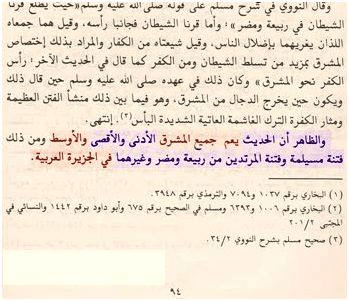 وقال النووي في شرح مسلم على قوله صلى الله عليه وسلم «حيث يطلع قرنا
الشيطان في ربيعة ومضر»: وأما قرنا الشيطان فجانبا رأسه، وقيل هما جمعاه
اللذان يغريهما بإضلال الناس، وقيل شيعتاه من الكفار والمراد بذلك إختصاص
المشرق بمزيد من تسلط الشيطان ومن الكفر كما قال في الحديث الآخر: رأس
الكفر نحو المشرق» وكان ذلك في عهده صلى الله عليه وسلم حين قال ذلك
ويكون حين يخرج الدجال من المشرق، وهو فيما بين ذلك منشأ الفتن العظيمة
ومثار الكفرة الترك الغاشمة العاتية الشديدة البأس(٣). إنتهى.
والظاهر أن الحديث يعم جميع المشرق الأدنى والأقصى والأوسط ومن ذلك
فتنة مسيلمة وفتنة المرتدين من ربيعة ومضر وغيرهما في الجزيرة العربية.
(١) البخاري برقم ١٠٣٧ و٧٠٩٤ والترمذي برقم ٣٩٤٨.
(٢) البخاري برقم ١٠٠٦ و٦٣٩٣ ومسلم في الصحيح برقم ٦٧٥ وأبو داود برقم ١٤٤٢ والنسائي في
المجتبى ٢٠١/٢
(٣) صحيح مسلم بشرح النووي ٣٤/٢.
٩٤